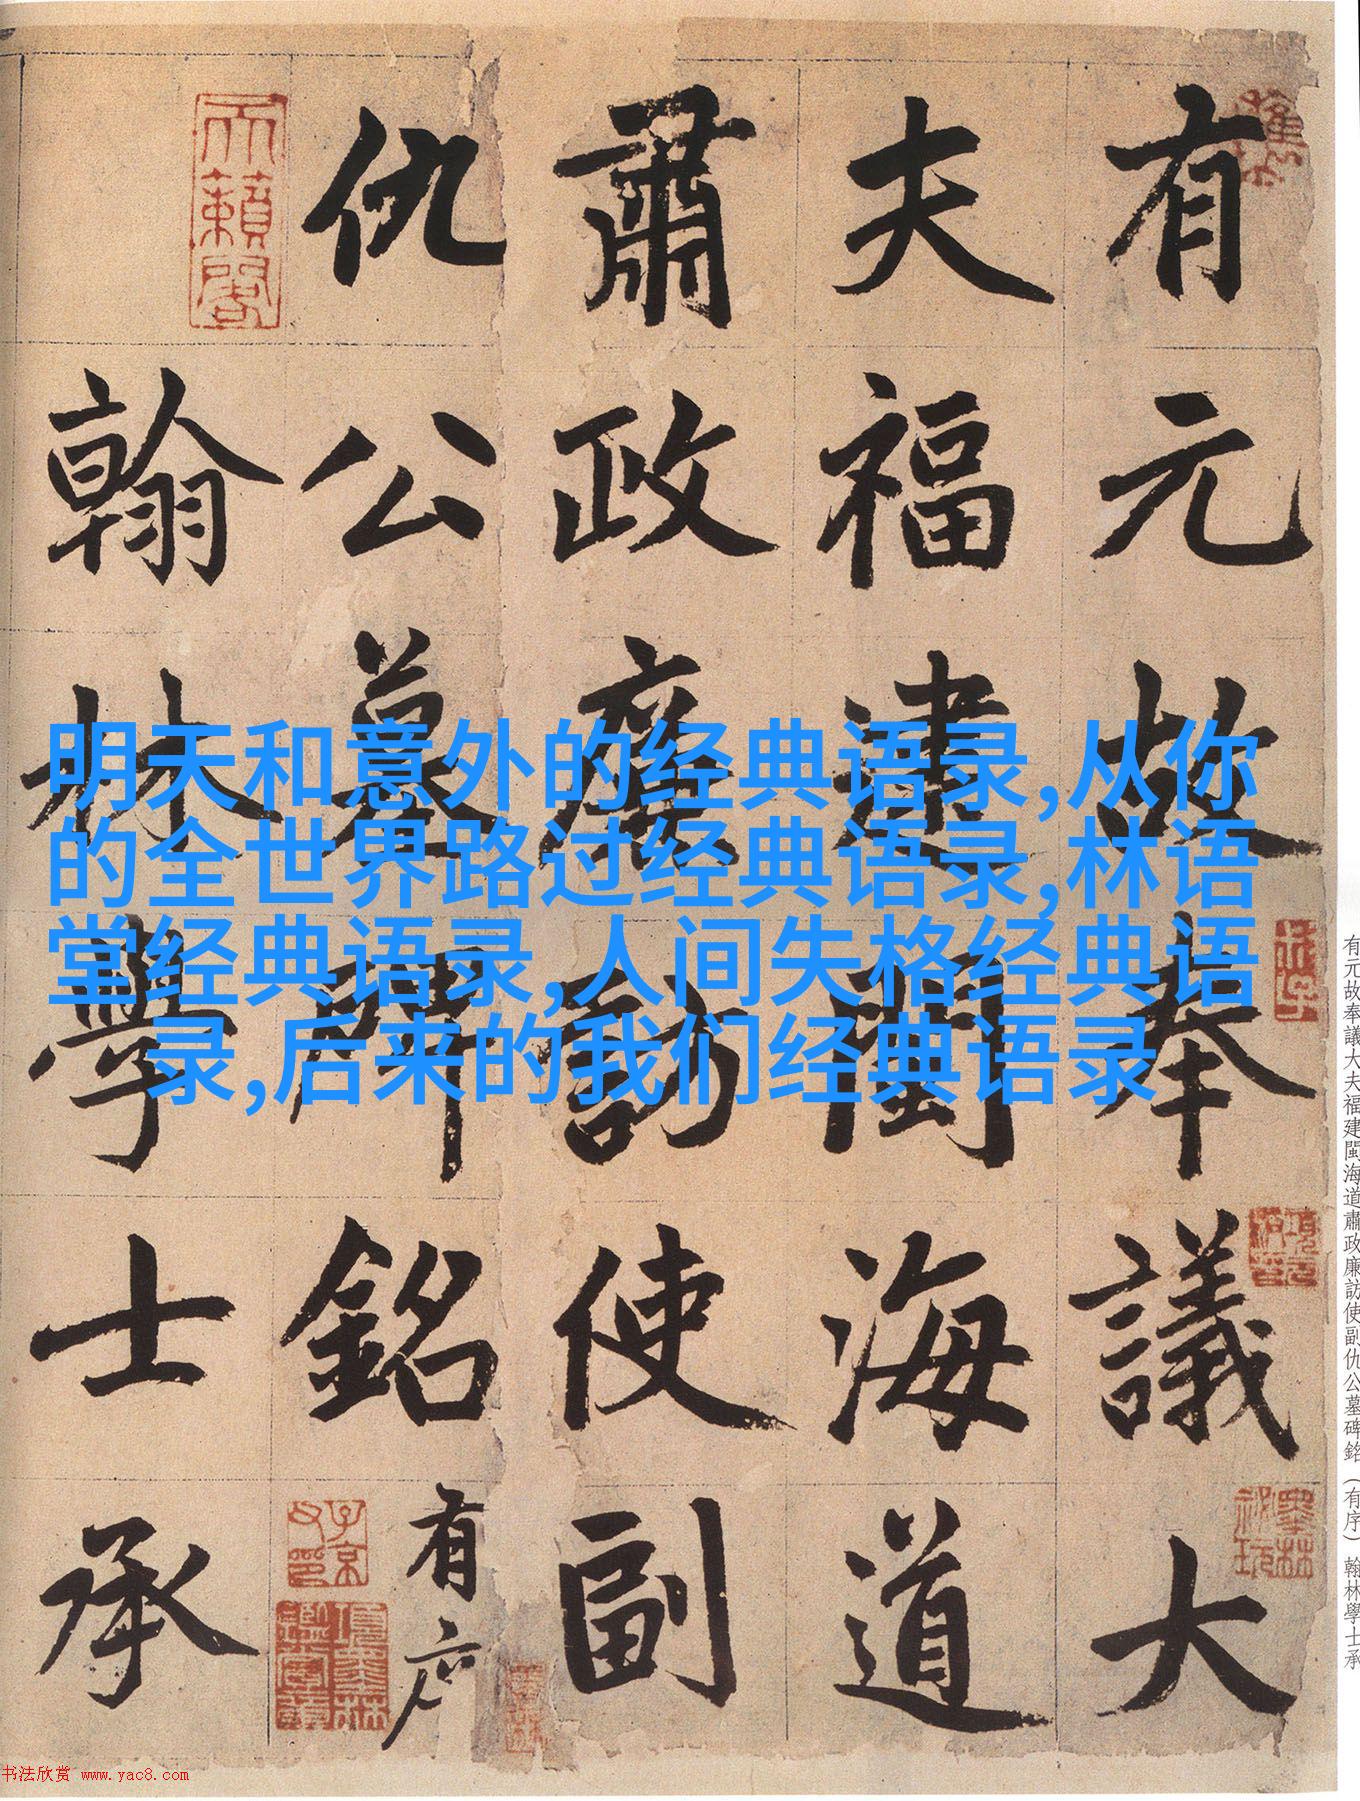 有元故奉議大
夫福建閩海道
肅政廉訪使副
仇公墓碑銘有序
翰林學士承
天籟閣
明天和意外的经典语录,从你
的全世界路过经典语录,林语
堂经典语录,人间失格经典语
录,后来的我们经典语录
有元故奉議大夫福建閩海道肅政廉訪使副仇公墓碑銘(有序)翰林學士承
子京父印
项墨林鑑賞章
墨林祕玩
项元汴印
书法欣赏 www.yac8.com